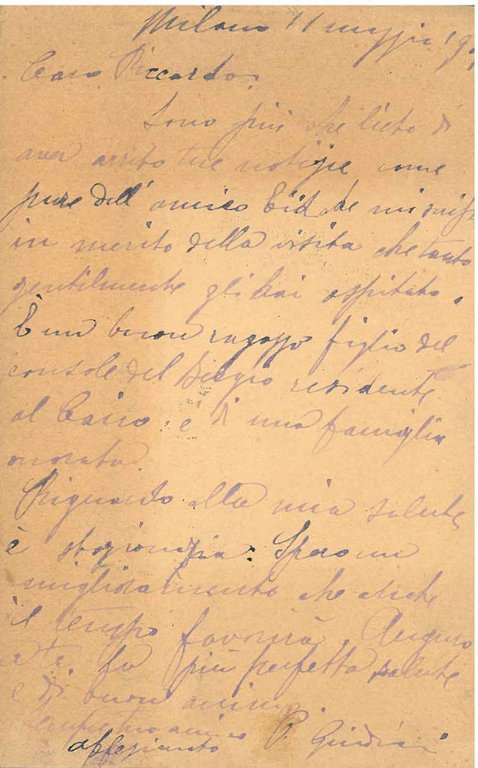 Milano 11 maggio 19
Caro Riccardo.
Sono più che lieto di
aver avuto tue notizie come
pure dell'amico Cid che mi
in merito della visita che tanto
gentilmente gli hai ospitato.
È un buon ragazzo figlio del
console del Belgio residente
al Cairo, e di una famiglia
onorata.
Riguardo alla mia salute
è stazionaria. Spero un
miglioramento che anche
il tempo favorirà. Auguro
a te la più perfetta salute
e di buon animo.
tuo amico
affezionato P. Giudici